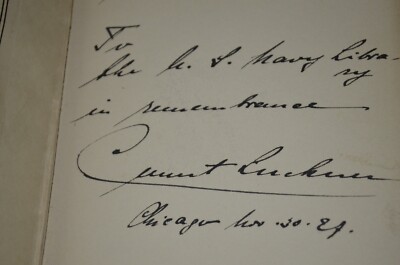 To
the U. S. Navy Libra-
ry
in remembrance
Count Luckner
Chicago Nov. 30. 29.